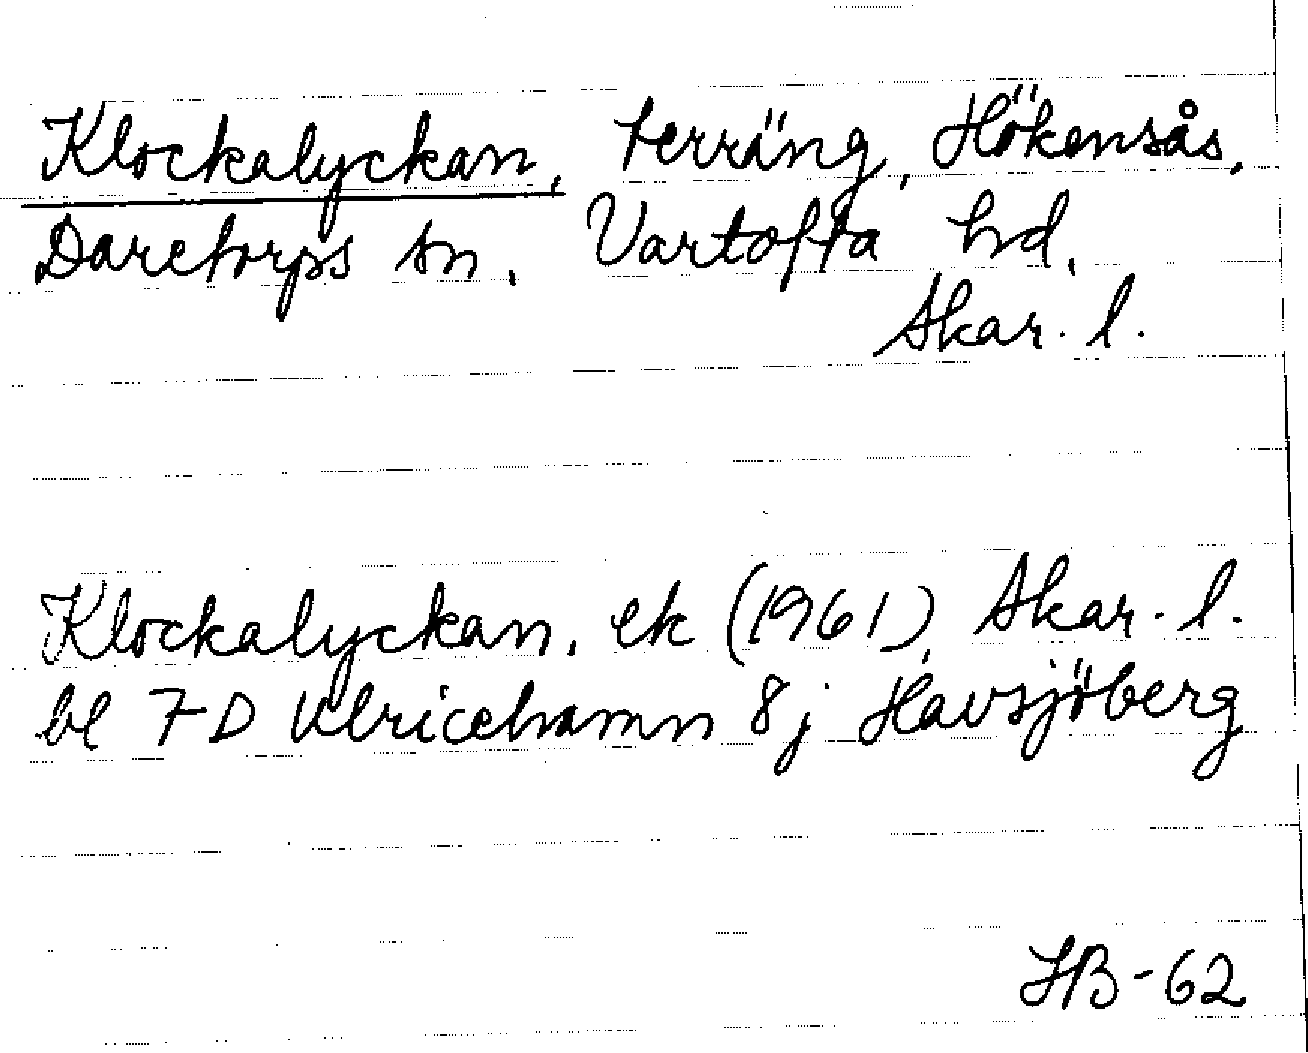 Klockalyckan, terräng, Hökensås,
Daretorps sn, Vartofta hd,
Skar. l.
Klockalyckan, ek (1961), Skar. l.
bl 7D Ulricehamn 8j Havsjöberg
HB-62